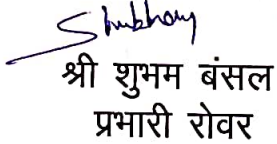 Shubham
श्री शुभम बंसल
प्रभारी रोवर